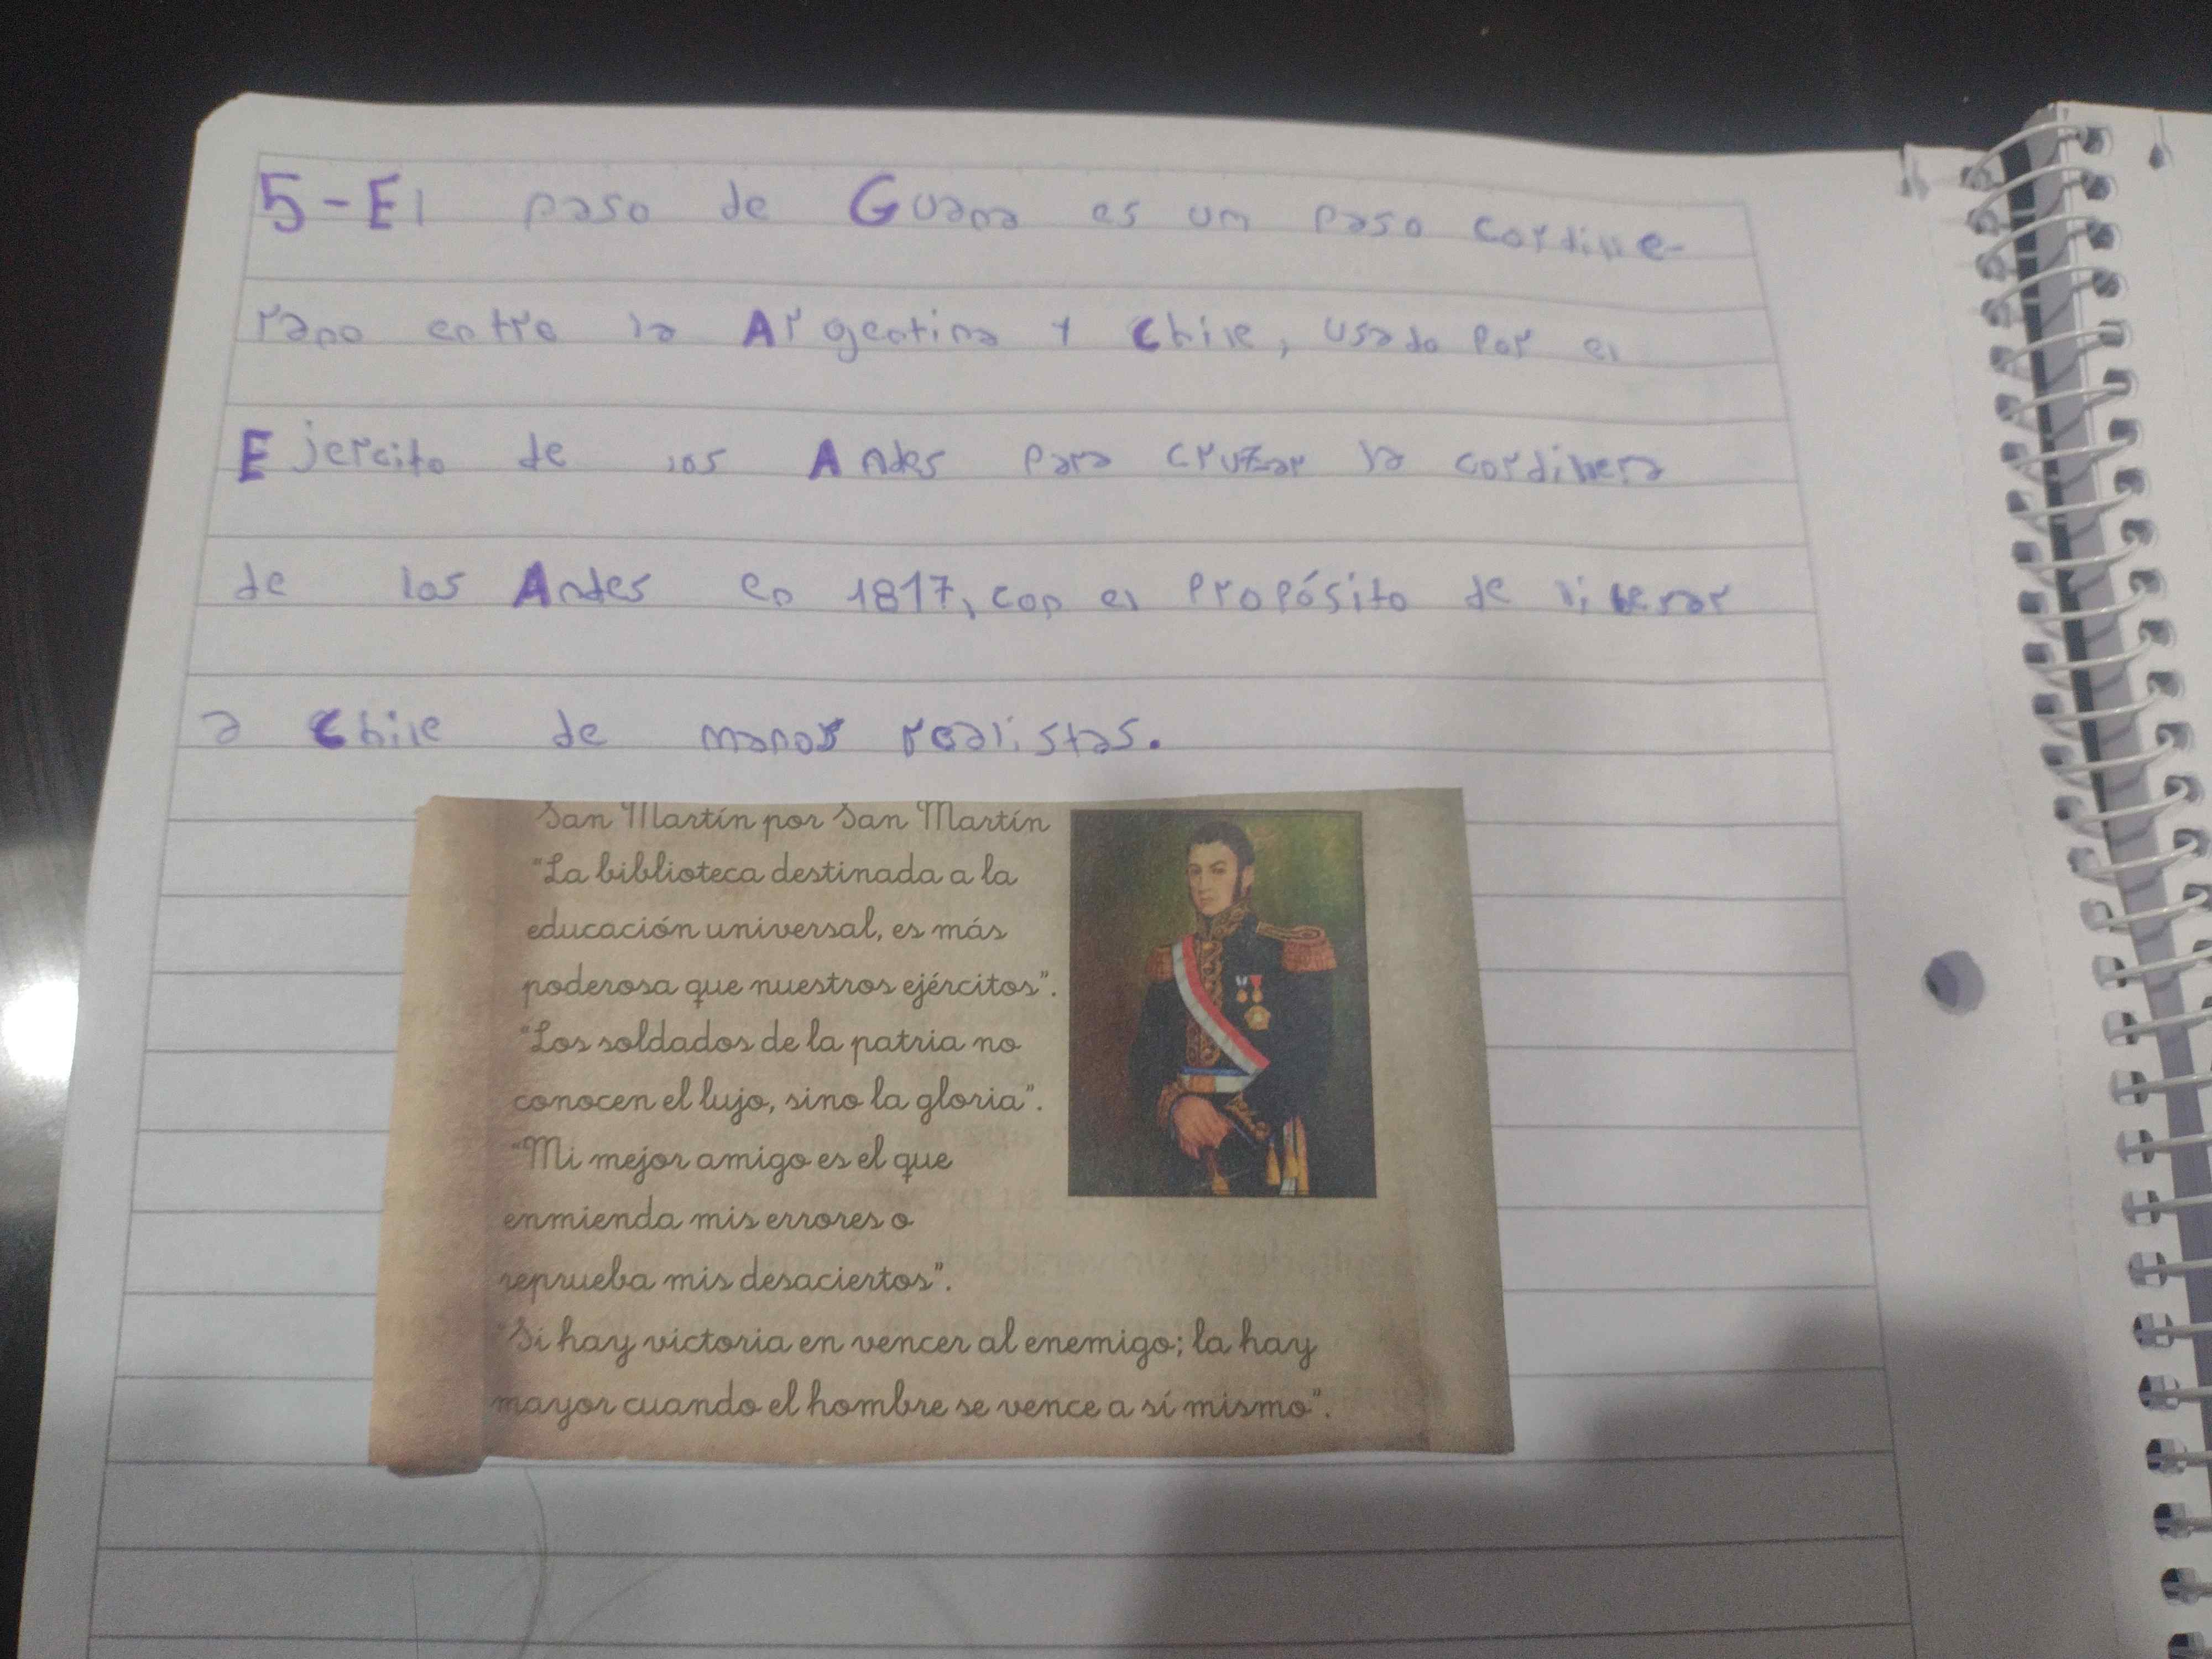 5-El paso de Guana es un paso cordille-
rano entre la Argentina y Chile, usado por el
Ejercito de los Andes para cruzar la cordillera
de los Andes en 1817, con el propósito de liberar
a Chile de manos realistas.
San Martín por San Martín
"La biblioteca destinada a la
educación universal, es más
poderosa que nuestros ejércitos".
"Los soldados de la patria no
conocen el lujo, sino la gloria".
"Mi mejor amigo es el que
enmienda mis errores o
reprueba mis desaciertos".
"Si hay victoria en vencer al enemigo; la hay
mayor cuando el hombre se vence a sí mismo".